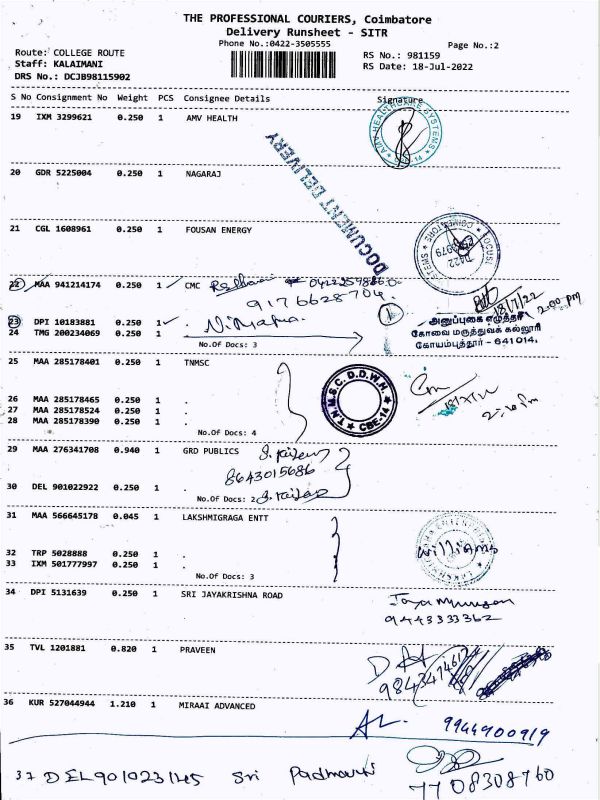 THE PROFESSIONAL COURIERS, Coimbatore
Delivery Runsheet - SITR
Phone No.:0422-3505555
Page No.:2
Route: COLLEGE ROUTE
Staff: KALAIMANI
DRS No.: DCJB98115902
RS No.: 981159
RS Date: 18-Jul-2022
S No Consignment No Weight PCS Consignee Details Signature
19 IXM 3299621 0.250 1 AMV HEALTH
AMV HEALTHCARE SYSTEMS
14
20 GDR 5225004 0.250 1 NAGARAJ
DOCUMENT DELIVERY
21 CGL 1608961 0.250 1 FOUSAN ENERGY
22 MAA 941214174 0.250 1 CMC
9176628704
1
18/7/22
2:00 pm
23 DPI 10183881 0.250 1 .
அனுப்புகை எழுத்தர்
கோவை மருத்துவக் கல்லூரி
கோயம்புத்தூர் - 641014.
24 TMG 200234069 0.250 1 .
No.Of Docs: 3
25 MAA 285178401 0.250 1 TNMSC
T.N.M.S.C. D.D.W.H.
CBE-14
26 MAA 285178465 0.250 1 .
27 MAA 285178524 0.250 1 .
28 MAA 285178390 0.250 1 .
No.Of Docs: 4
29 MAA 276341708 0.940 1 GRD PUBLICS
8643015686
30 DEL 901022922 0.250 1 .
No.Of Docs: 2
31 MAA 566645178 0.045 1 LAKSHMIGRAGA ENTT
32 TRP 5028888 0.250 1 .
33 IXM 501777997 0.250 1 .
No.Of Docs: 3
34 DPI 5131639 0.250 1 SRI JAYAKRISHNA ROAD
9443333362
35 TVL 1201881 0.820 1 PRAVEEN
36 KUR 527044944 1.210 1 MIRAAI ADVANCED
9944900919
37 DEL901023145 Sri
7708308760